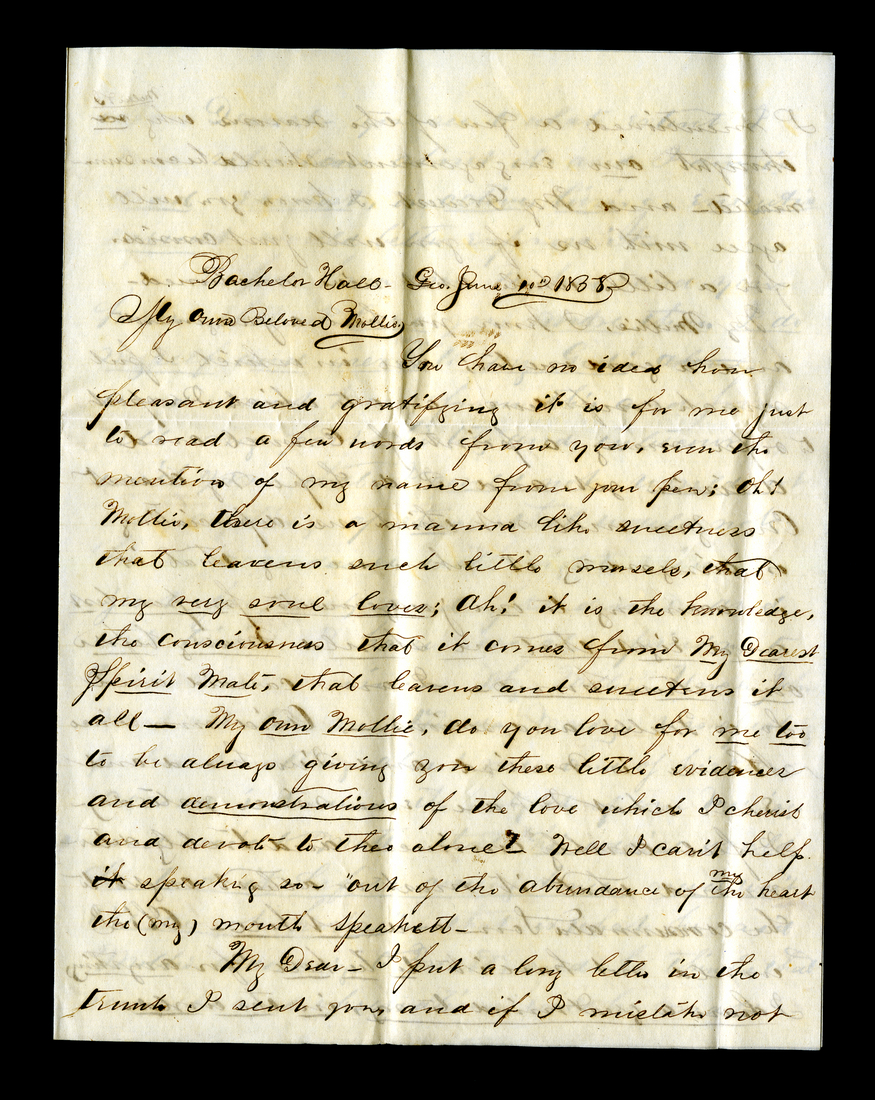 Bachelor Hall - Geo. June 1858
My Own Beloved Mollie,
You have no idea how
pleasant and gratifying it is for me just
to read a few words from you, even the
mention of my name from your pen; Oh!
Mollie, there is a manna like sweetness
that leavens such little morsels, that
my very soul loves; Ah! it is the knowledge,
the consciousness that it comes from My Dearest
Spirit Mate, that leavens and sweetens it
all — My Own Mollie, do you love for me too
to be always giving you these little evidences
and demonstrations of the love which I cherish
and devote to thee alone? Well I can't help
it speaking so - "out of the abundance of the my heart
the (my) mouth speaketh -
My Dear - I put a long letter in the
trunk I sent you, and if I mistake not